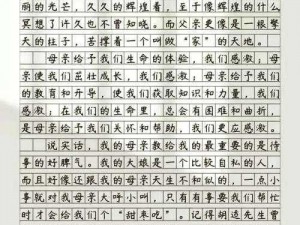 丽的光芒，许久的辉煌着，至于像辉煌的什么
冥想了许久也不曾知晓。而父亲更像是一根擎
天的柱子，苦撑着一个叫做“家”的天地。
母亲给予我们生命的体验，我们感激；母
亲使我们茁壮成长，我们感激；母亲给予我们
的教育和开导，使我们获取知识和力量，我们
感激；在我们的生命里，总会有困难和曲折，
是母亲给予我们关怀和帮助，我们更应感激。
说实话，我的母亲教给我的最重要的是待
事的好脾气。我的大娘是一个比较自私的人，
而且好像还跟我的母亲天生不和似的，一点小
事就对我母亲大呼小叫，只有有事要我们帮忙
时才会给我们个“甜枣吃”。记得胡适先生曾